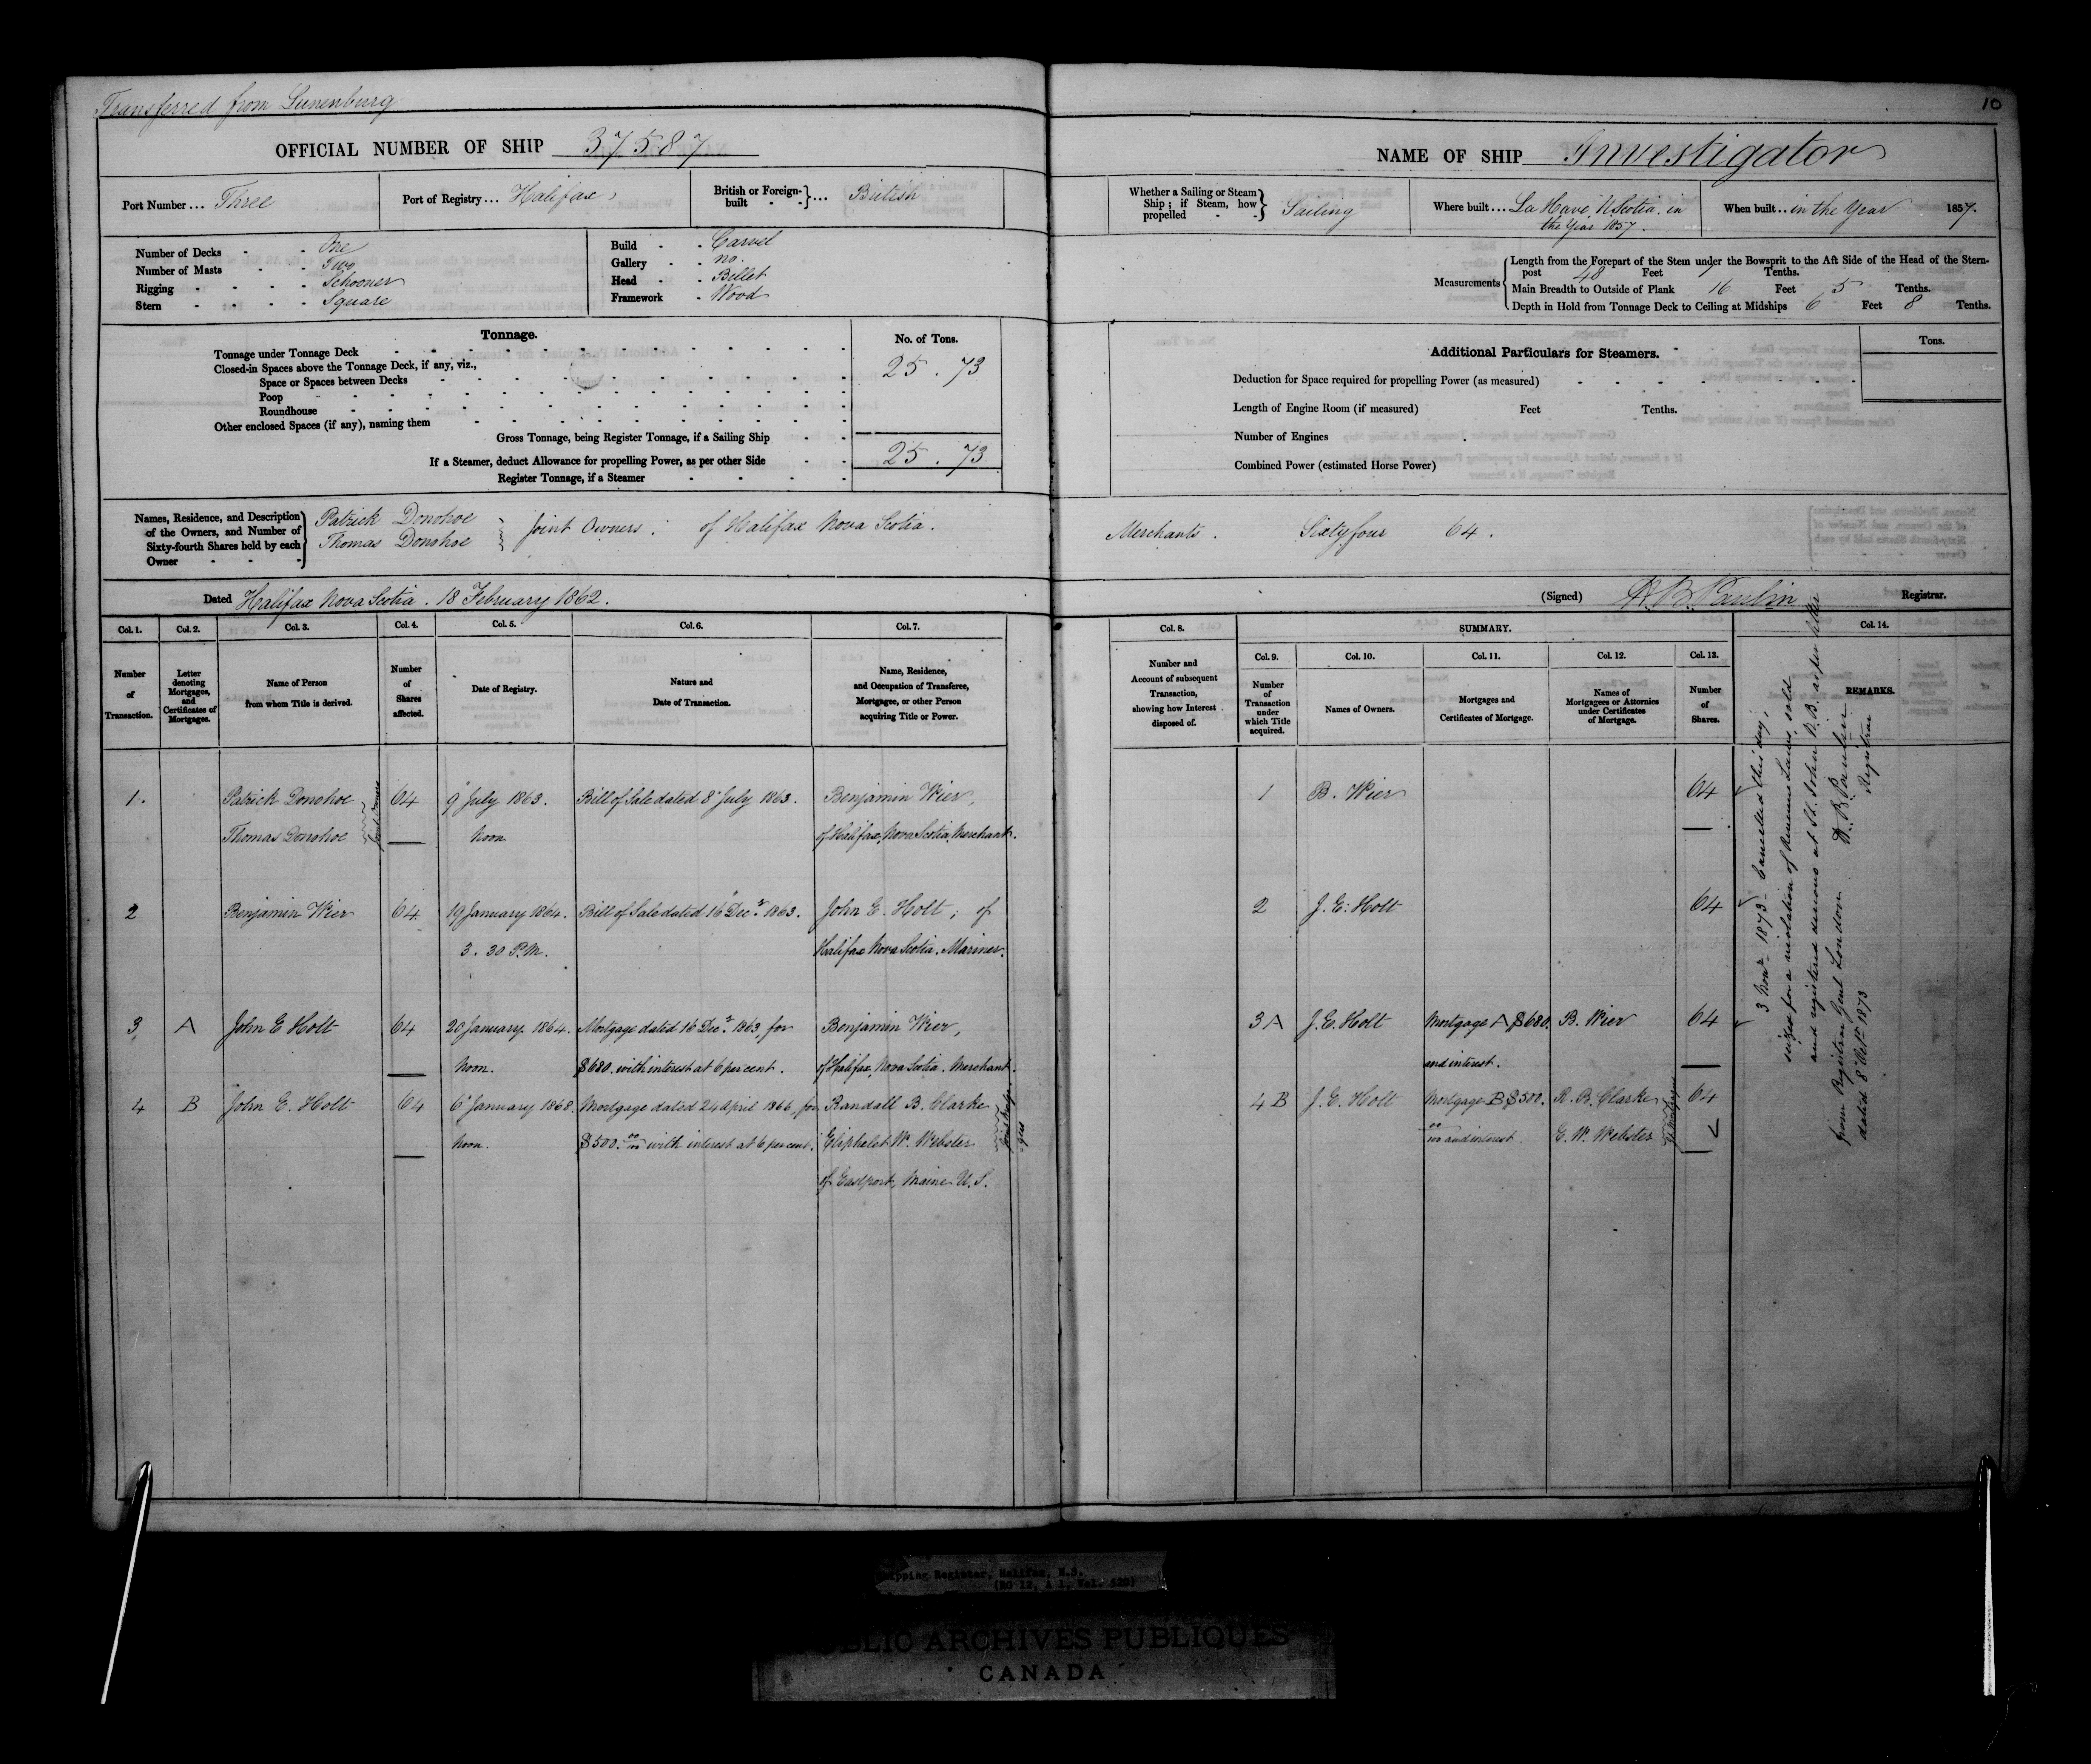 Transferred from Lunenburg
10
OFFICIAL NUMBER OF SHIP 37587
NAME OF SHIP Investigator
Port Number ... Three
Port of Registry ... Halifax
British or Foreign-built - - } ... British
Whether a Sailing or Steam Ship; if Steam, how propelled - - } Sailing
Where built ... La Have, N Scotia, in the Year 1857.
When built .. in the Year 1857.
Number of Decks - - One
Number of Masts - - Two
Rigging - - - - Schooner
Stern - - - - Square
Build - - Carvel
Gallery - - no.
Head - - Billet
Framework - Wood
Measurements
Length from the Forepart of the Stem under the Bowsprit to the Aft Side of the Head of the Stern-
post 48 Feet 7 Tenths.
Main Breadth to Outside of Plank 16 Feet 5 Tenths.
Depth in Hold from Tonnage Deck to Ceiling at Midships 6 Feet 8 Tenths.
Tonnage.
No. of Tons.
Tonnage under Tonnage Deck
25 . 73
Closed-in Spaces above the Tonnage Deck, if any, viz.,
Space or Spaces between Decks
Poop
Roundhouse
Other enclosed Spaces (if any), naming them
Gross Tonnage, being Register Tonnage, if a Sailing Ship
25 . 73
If a Steamer, deduct Allowance for propelling Power, as per other Side
Register Tonnage, if a Steamer
Additional Particulars for Steamers.
Tons.
Deduction for Space required for propelling Power (as measured)
Length of Engine Room (if measured) Feet Tenths.
Number of Engines
Combined Power (estimated Horse Power)
Names, Residence, and Description
of the Owners, and Number of
Sixty-fourth Shares held by each
Owner - - -
Patrick Donohoe
Thomas Donohoe
Joint Owners. of Halifax Nova Scotia.
Merchants. Sixty four 64.
Dated Halifax Nova Scotia. 18 February 1862.
(Signed) Registrar.
Col. 1. Col. 2. Col. 3. Col. 4. Col. 5. Col. 6. Col. 7.
Number of Transaction.
Letter denoting Mortgages, and Certificates of Mortgages.
Name of Person from whom Title is derived.
Number of Shares affected.
Date of Registry.
Nature and Date of Transaction.
Name, Residence, and Occupation of Transferee, Mortgagee, or other Person acquiring Title or Power.
1. Patrick Donohoe 64 9 July 1863. Bill of Sale dated 8 July 1863. Benjamin Wier,
Thomas Donohoe Joint Owners Noon of Halifax, Nova Scotia, Merchant.
2 Benjamin Wier 64 19 January 1864. Bill of Sale dated 16 Decr. 1863. John E. Holt, of
3. 30 P.M. Halifax Nova Scotia. Mariner.
3 A John E Holt 64 20 January 1864. Mortgage dated 16 Decr. 1863, for Benjamin Wier,
Noon. $680. with interest at 6 per cent. of Halifax, Nova Scotia. Merchant.
4 B John E. Holt 64 6 January 1868. Mortgage dated 24 April 1866, for Randall B. Clarke
Noon. $500. 00/100 with interest at 6 per cent. Eliphalet W. Webster
of Eastport, Maine U.S.
Col. 8. SUMMARY. Col. 14.
Col. 9. Col. 10. Col. 11. Col. 12. Col. 13.
Number and Account of subsequent Transaction, showing how Interest disposed of.
Number of Transaction under which Title acquired.
Names of Owners.
Mortgages and Certificates of Mortgage.
Names of Mortgagees or Attornies under Certificates of Mortgage.
Number of Shares.
REMARKS.
1 B. Wier 64
2 J. E. Holt 64
3 A J. E. Holt Mortgage A $680. B. Wier 64
and interest.
4 B J. E. Holt Mortgage B $500. R. B. Clarke 64
00/100 and interest. E. W. Webster
3 Novr. 1873 - Cancelled this day,
seized for a violation of Revenue Laws, sold
and registered de novo at St. John N.B. as per letter
from Registrar Genl London
dated 8 Octr 1873
Registrar
Shipping Register, Halifax, N.S.
(RG 12, A 1, Vol. 520)
PUBLIC ARCHIVES PUBLIQUES
CANADA